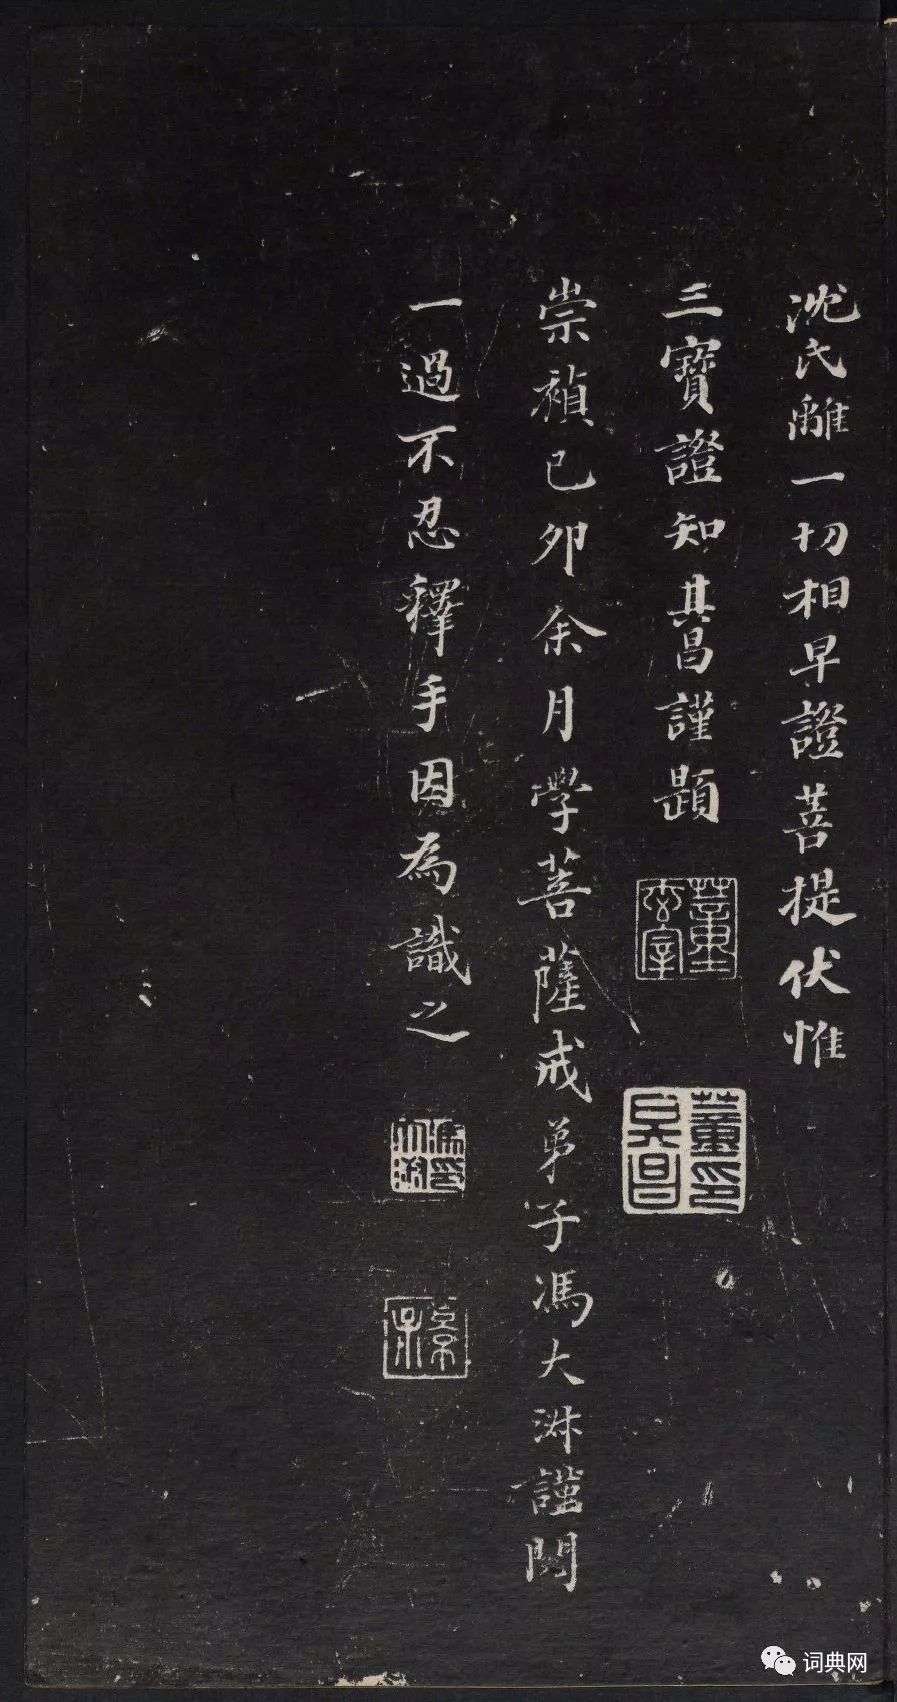 沈氏離一切相早證菩提伏惟
三寶證知其昌謹題
崇禎己卯余月學菩薩戒弟子馮大
謹閱
一過不忍釋手因為識之
董其昌印
词典网